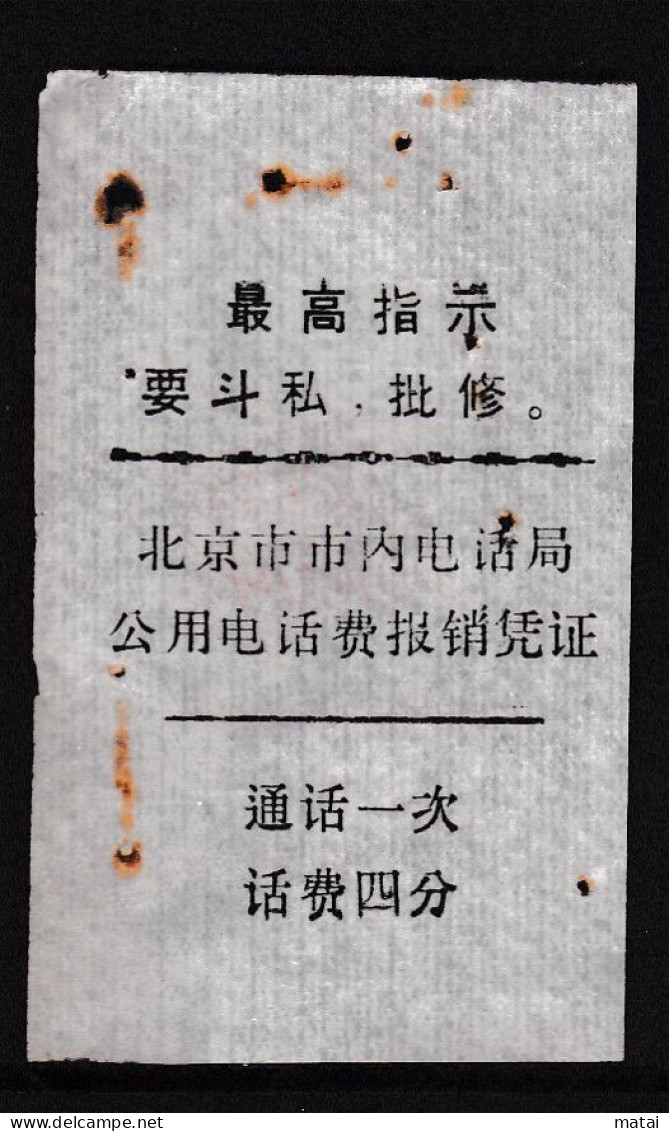 最高指示
要斗私，批修。
北京市市内电话局
公用电话费报销凭证
通话一次
话费四分
matai